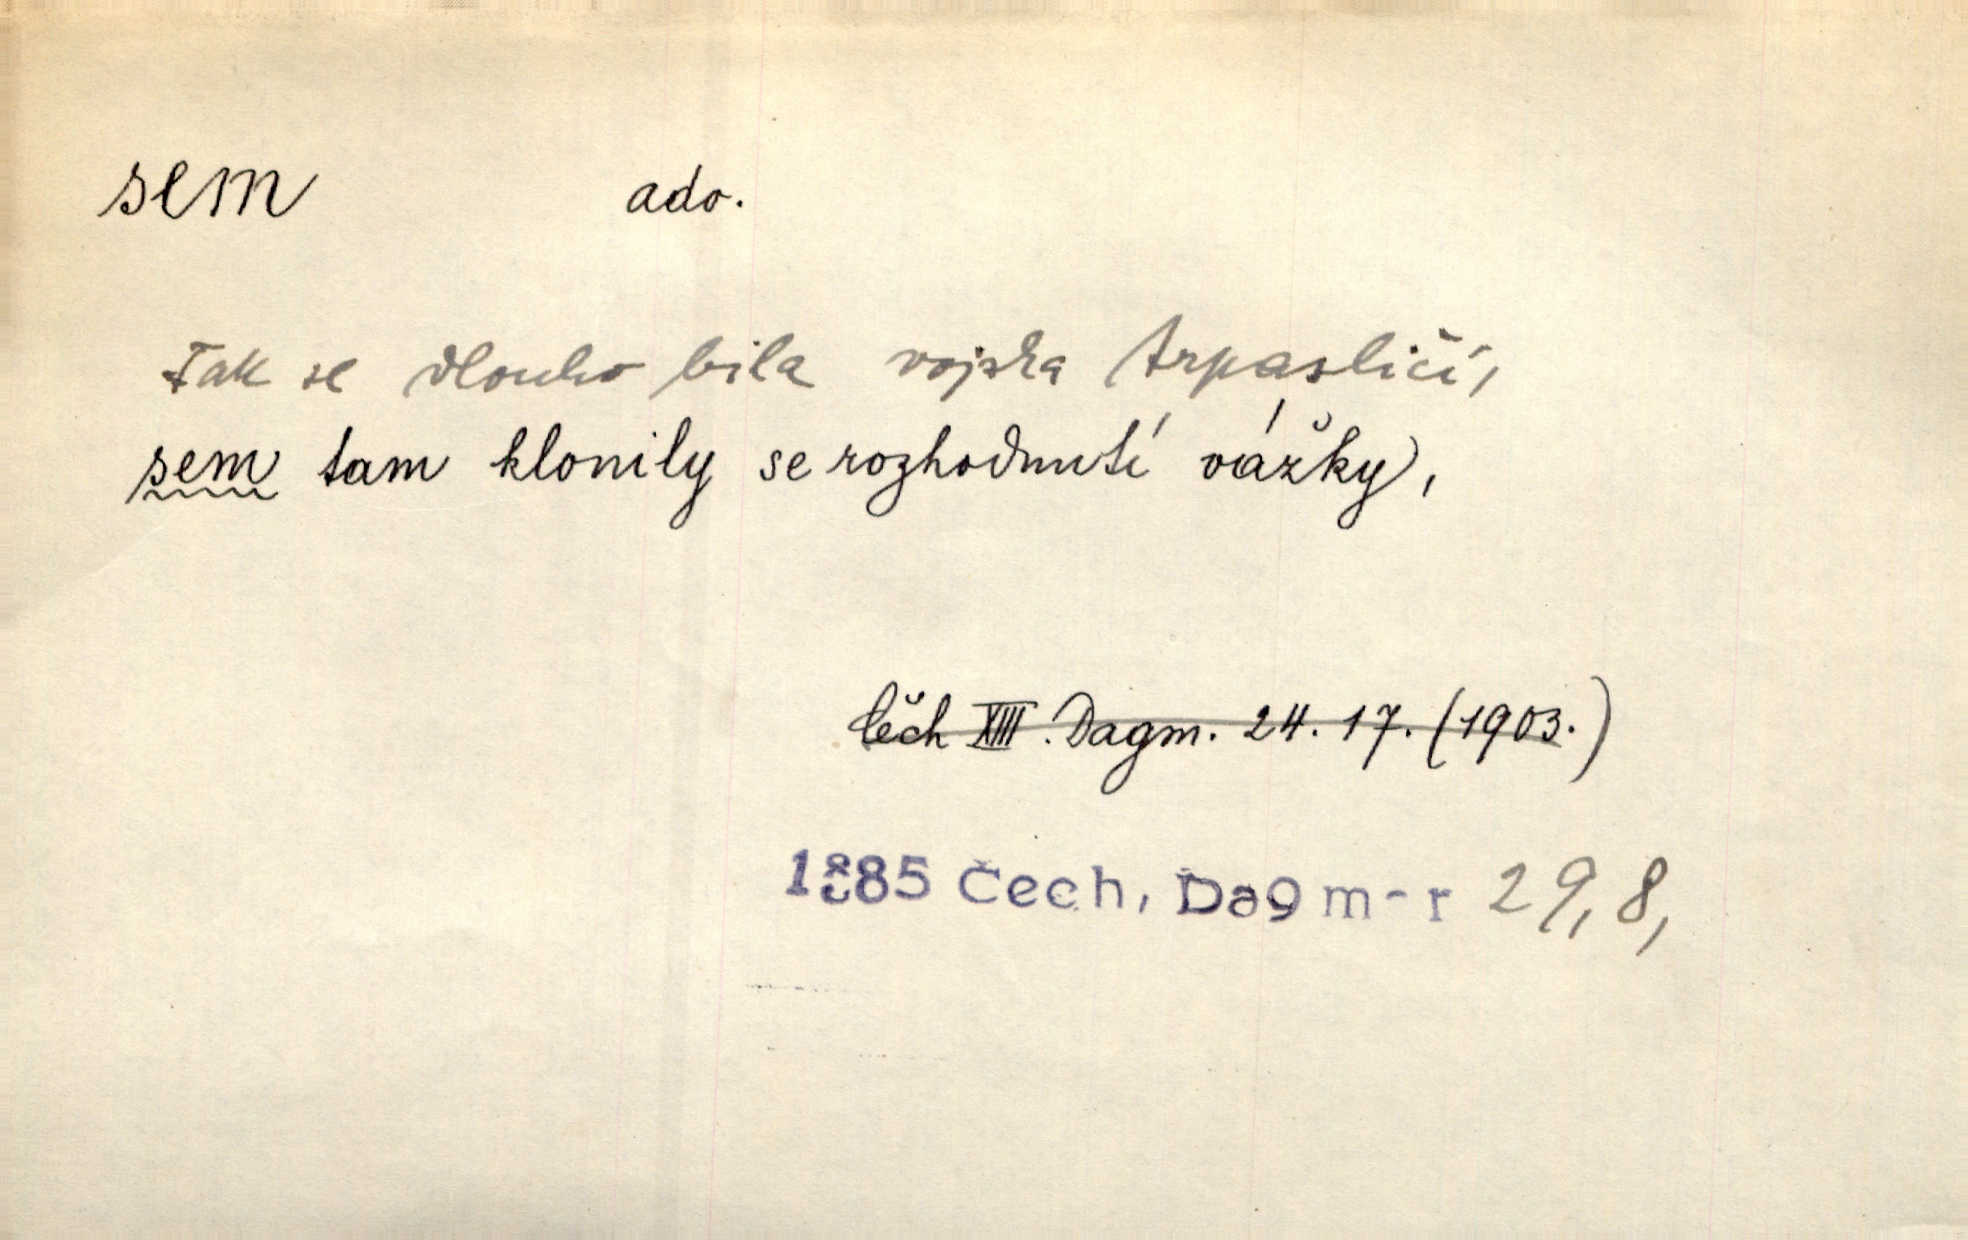 sem adv.
Tak se dlouho bila vojska trpasličí,
sem tam klonily se rozhodnutí vážky,
Čech XIII. Dagm. 24. 17. (1903.)
1885 Čech, Dagm-r 29, 8,